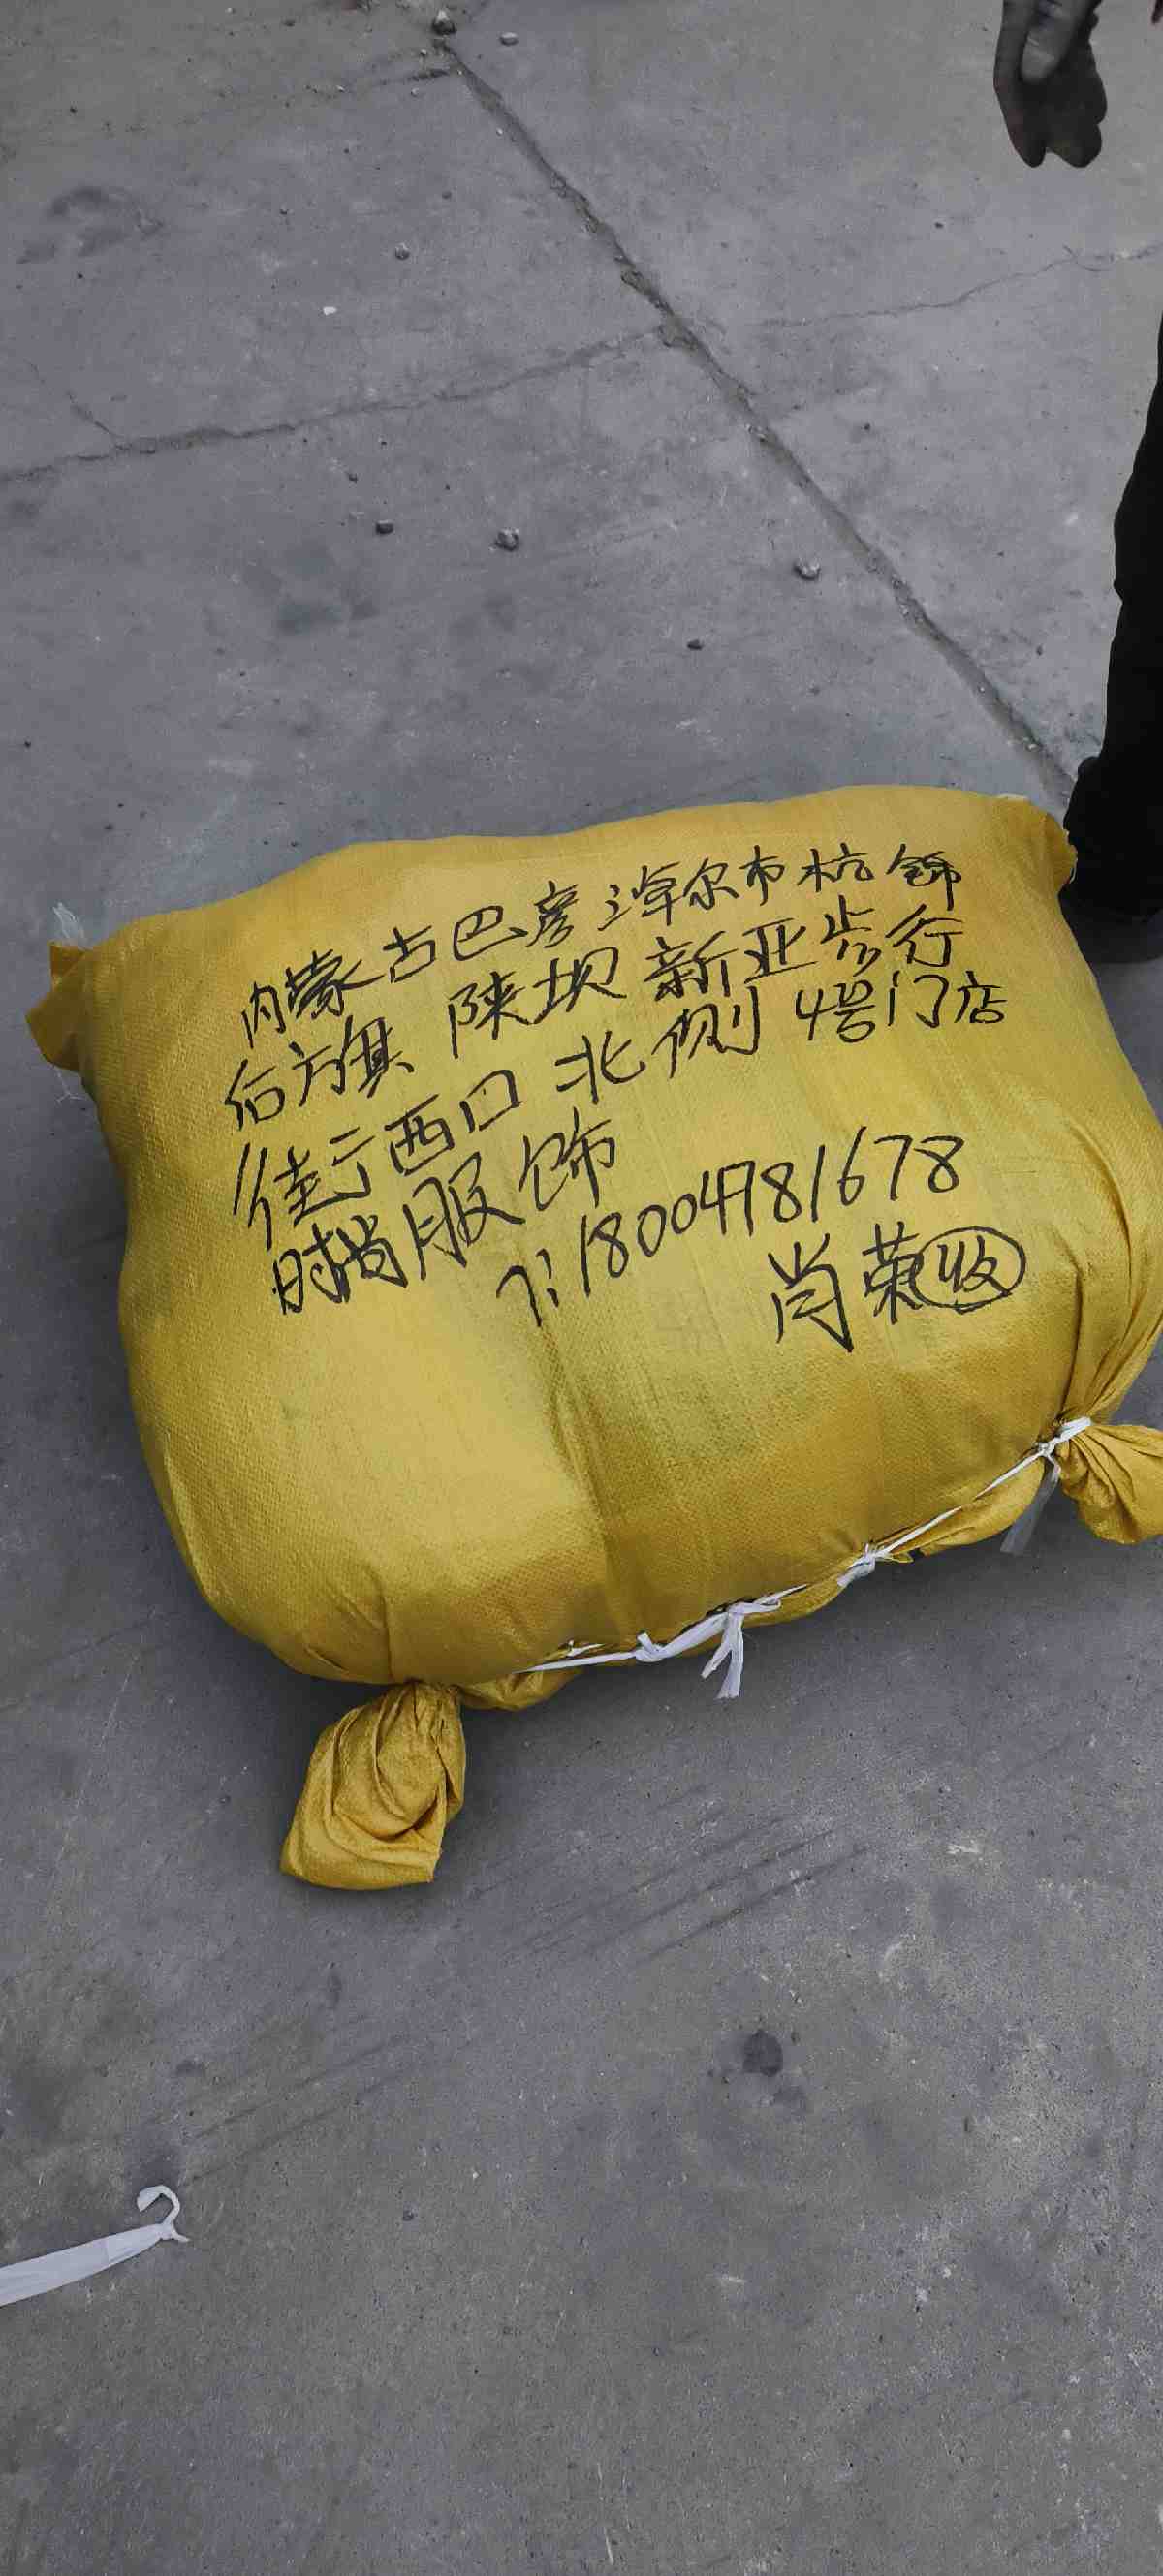 内蒙古巴彦淖尔市杭锦
后旗 陕坝 新亚步行
街西口 北侧 4号门店
时尚服饰
T:18004781678
肖荣收